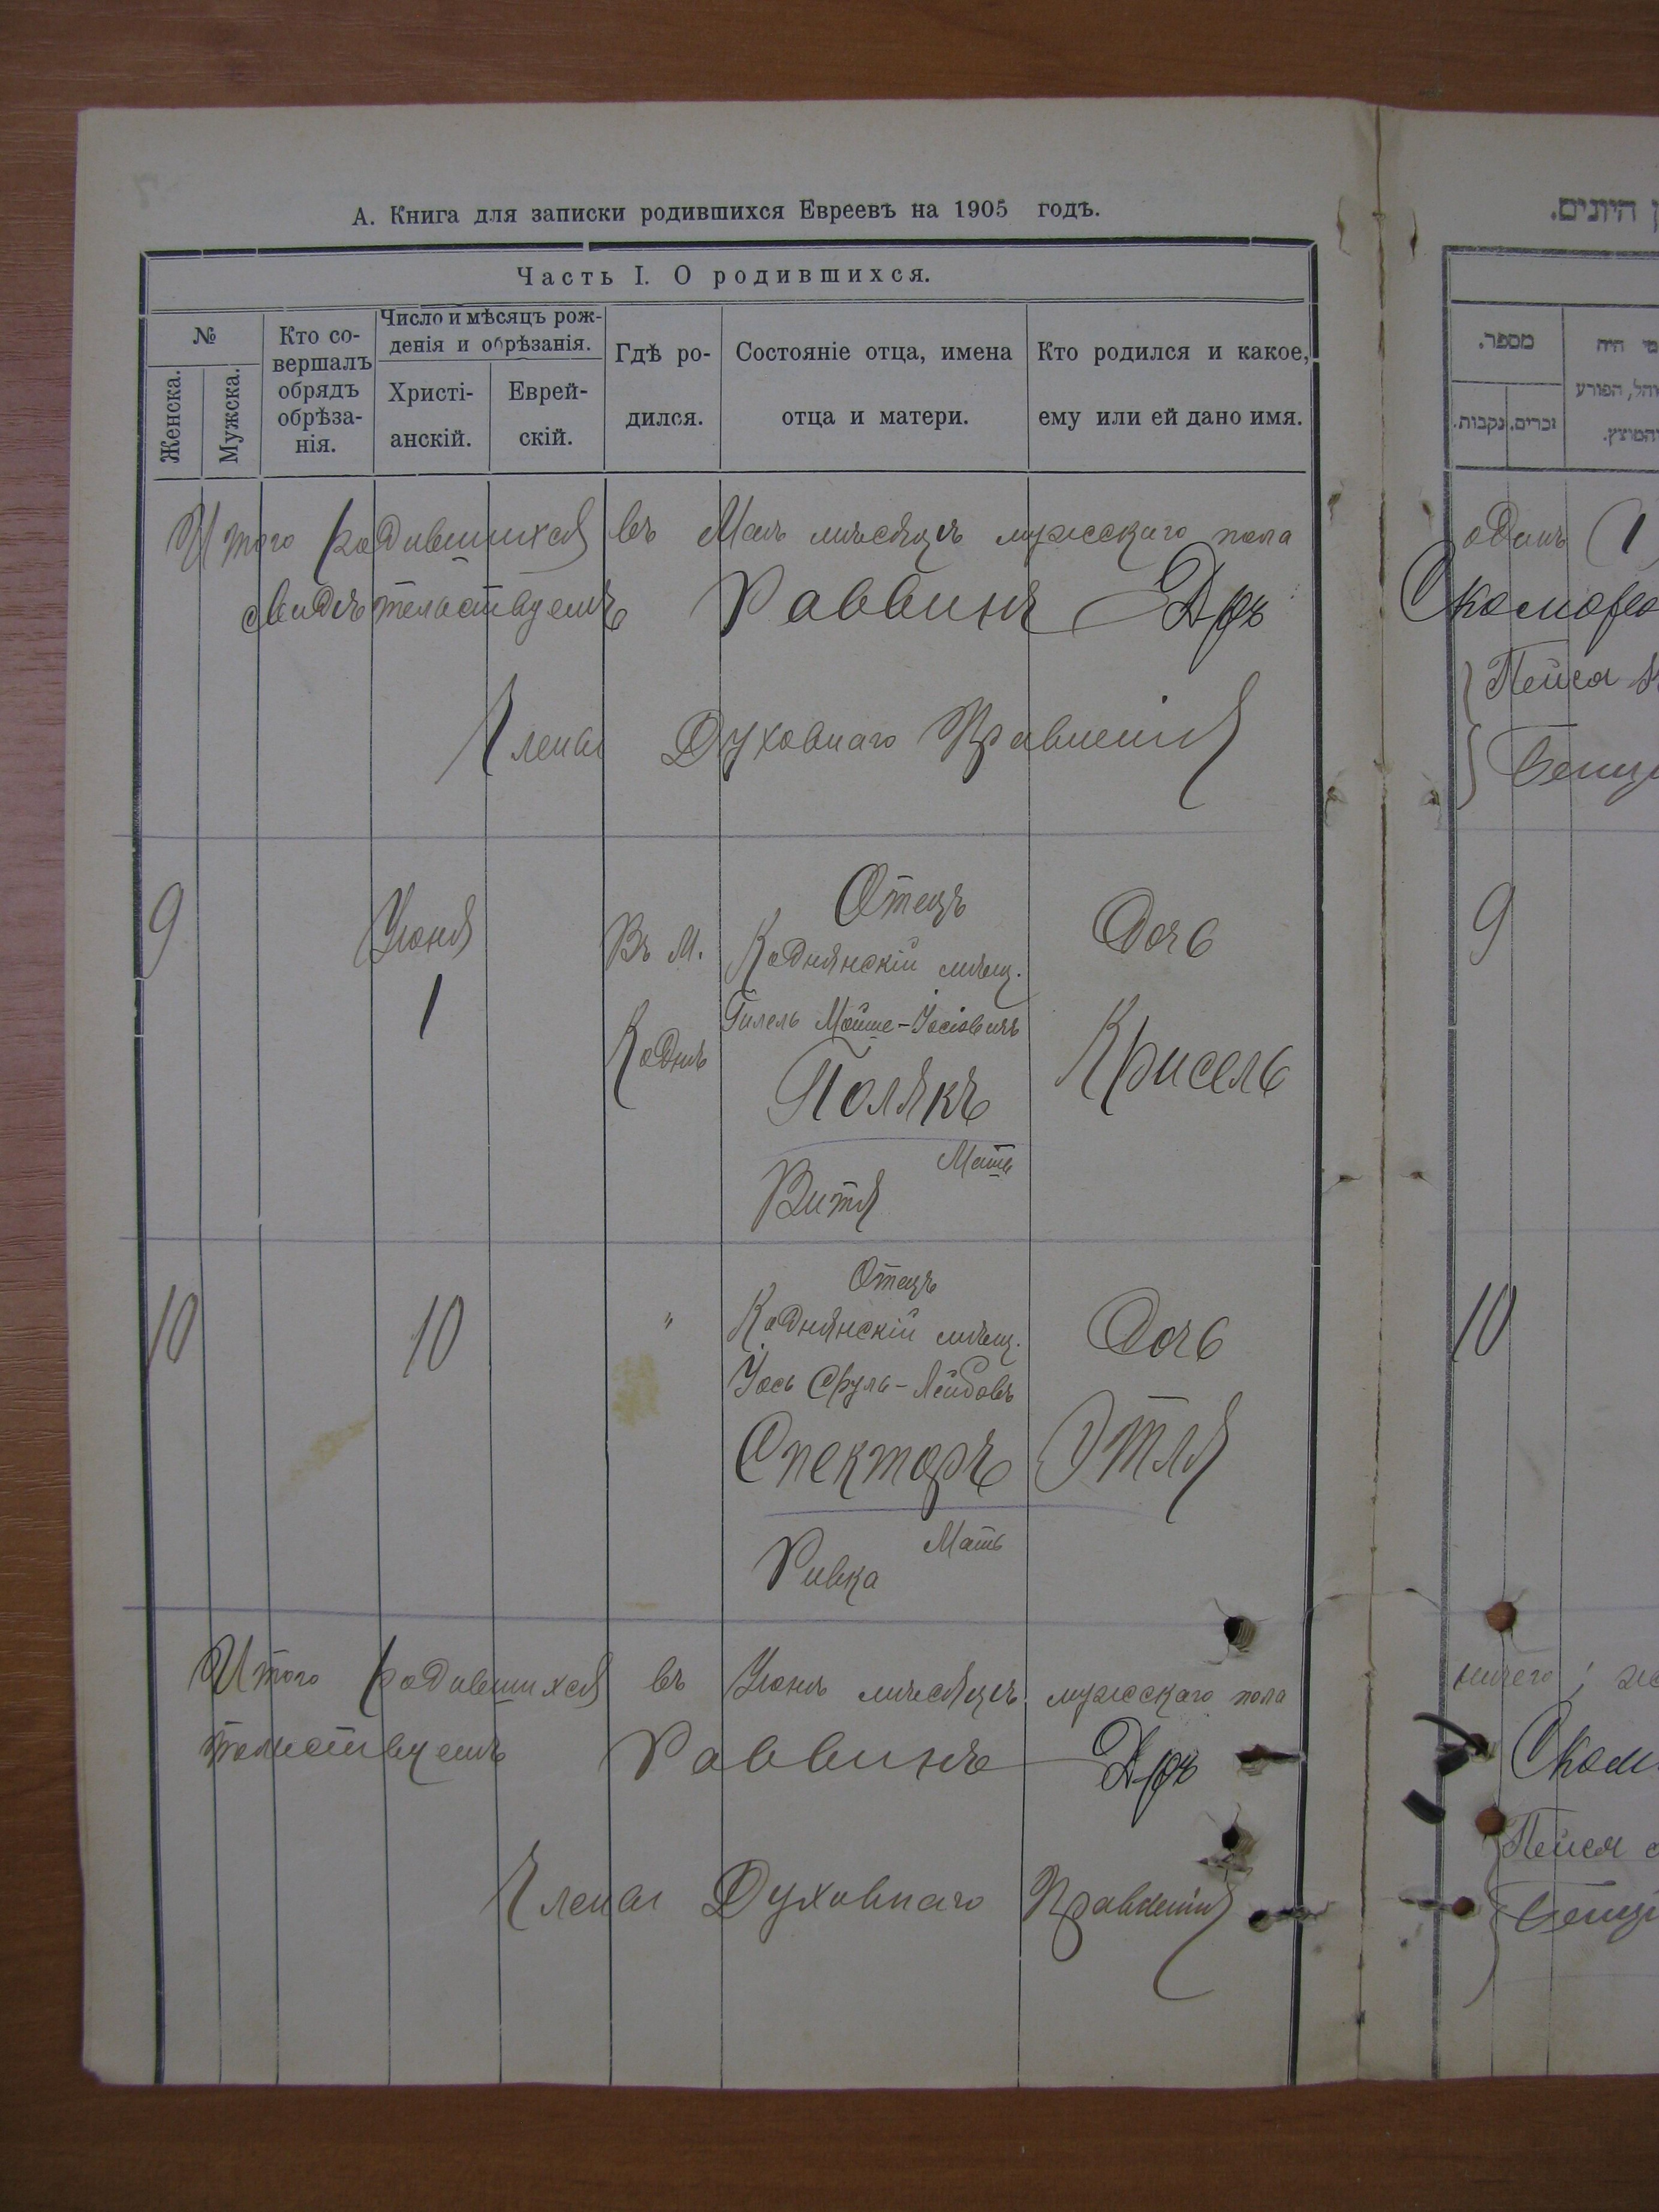 А. Книга для записки родившихся Евреевъ на 1905 годъ.
Часть I. О родившихся.
№
Женска.
Мужска.
Кто со-
вершалъ
обрядъ
обрѣза-
нія.
Число и мѣсяцъ рож-
денія и обрѣзанія.
Христі-
анскій.
Еврей-
скій.
Гдѣ ро-
дился.
Состояніе отца, имена
отца и матери.
Кто родился и какое,
ему или ей дано имя.
Итого родившихся въ Маѣ мѣсяцѣ мужескаго пола
свидѣтельствуемъ Раввинъ Дръ
Члены Духовнаго Правленія
9
Іюня
1
Въ М.
Коднѣ
Отецъ
Коднянскій мѣщ.
Гилель Мойше-Іосіовичъ
Полякъ
Мать
Витя
Дочь
Крисель
10
10
"
Отецъ
Коднянскій мѣщ.
Іось Сруль-Лейбовъ
Спекторъ
Мать
Ривка
Дочь
Этля
Итого родившихся въ Іюнѣ мѣсяцѣ мужескаго пола
тельствуемъ Раввинъ Дръ
Члены Духовнаго Правленія
היונים.
מספר.
זכרים.
נקבות.
מי היה
והמוצץ.
одинъ (1
Пейся
9
10
ничего;
Пейся